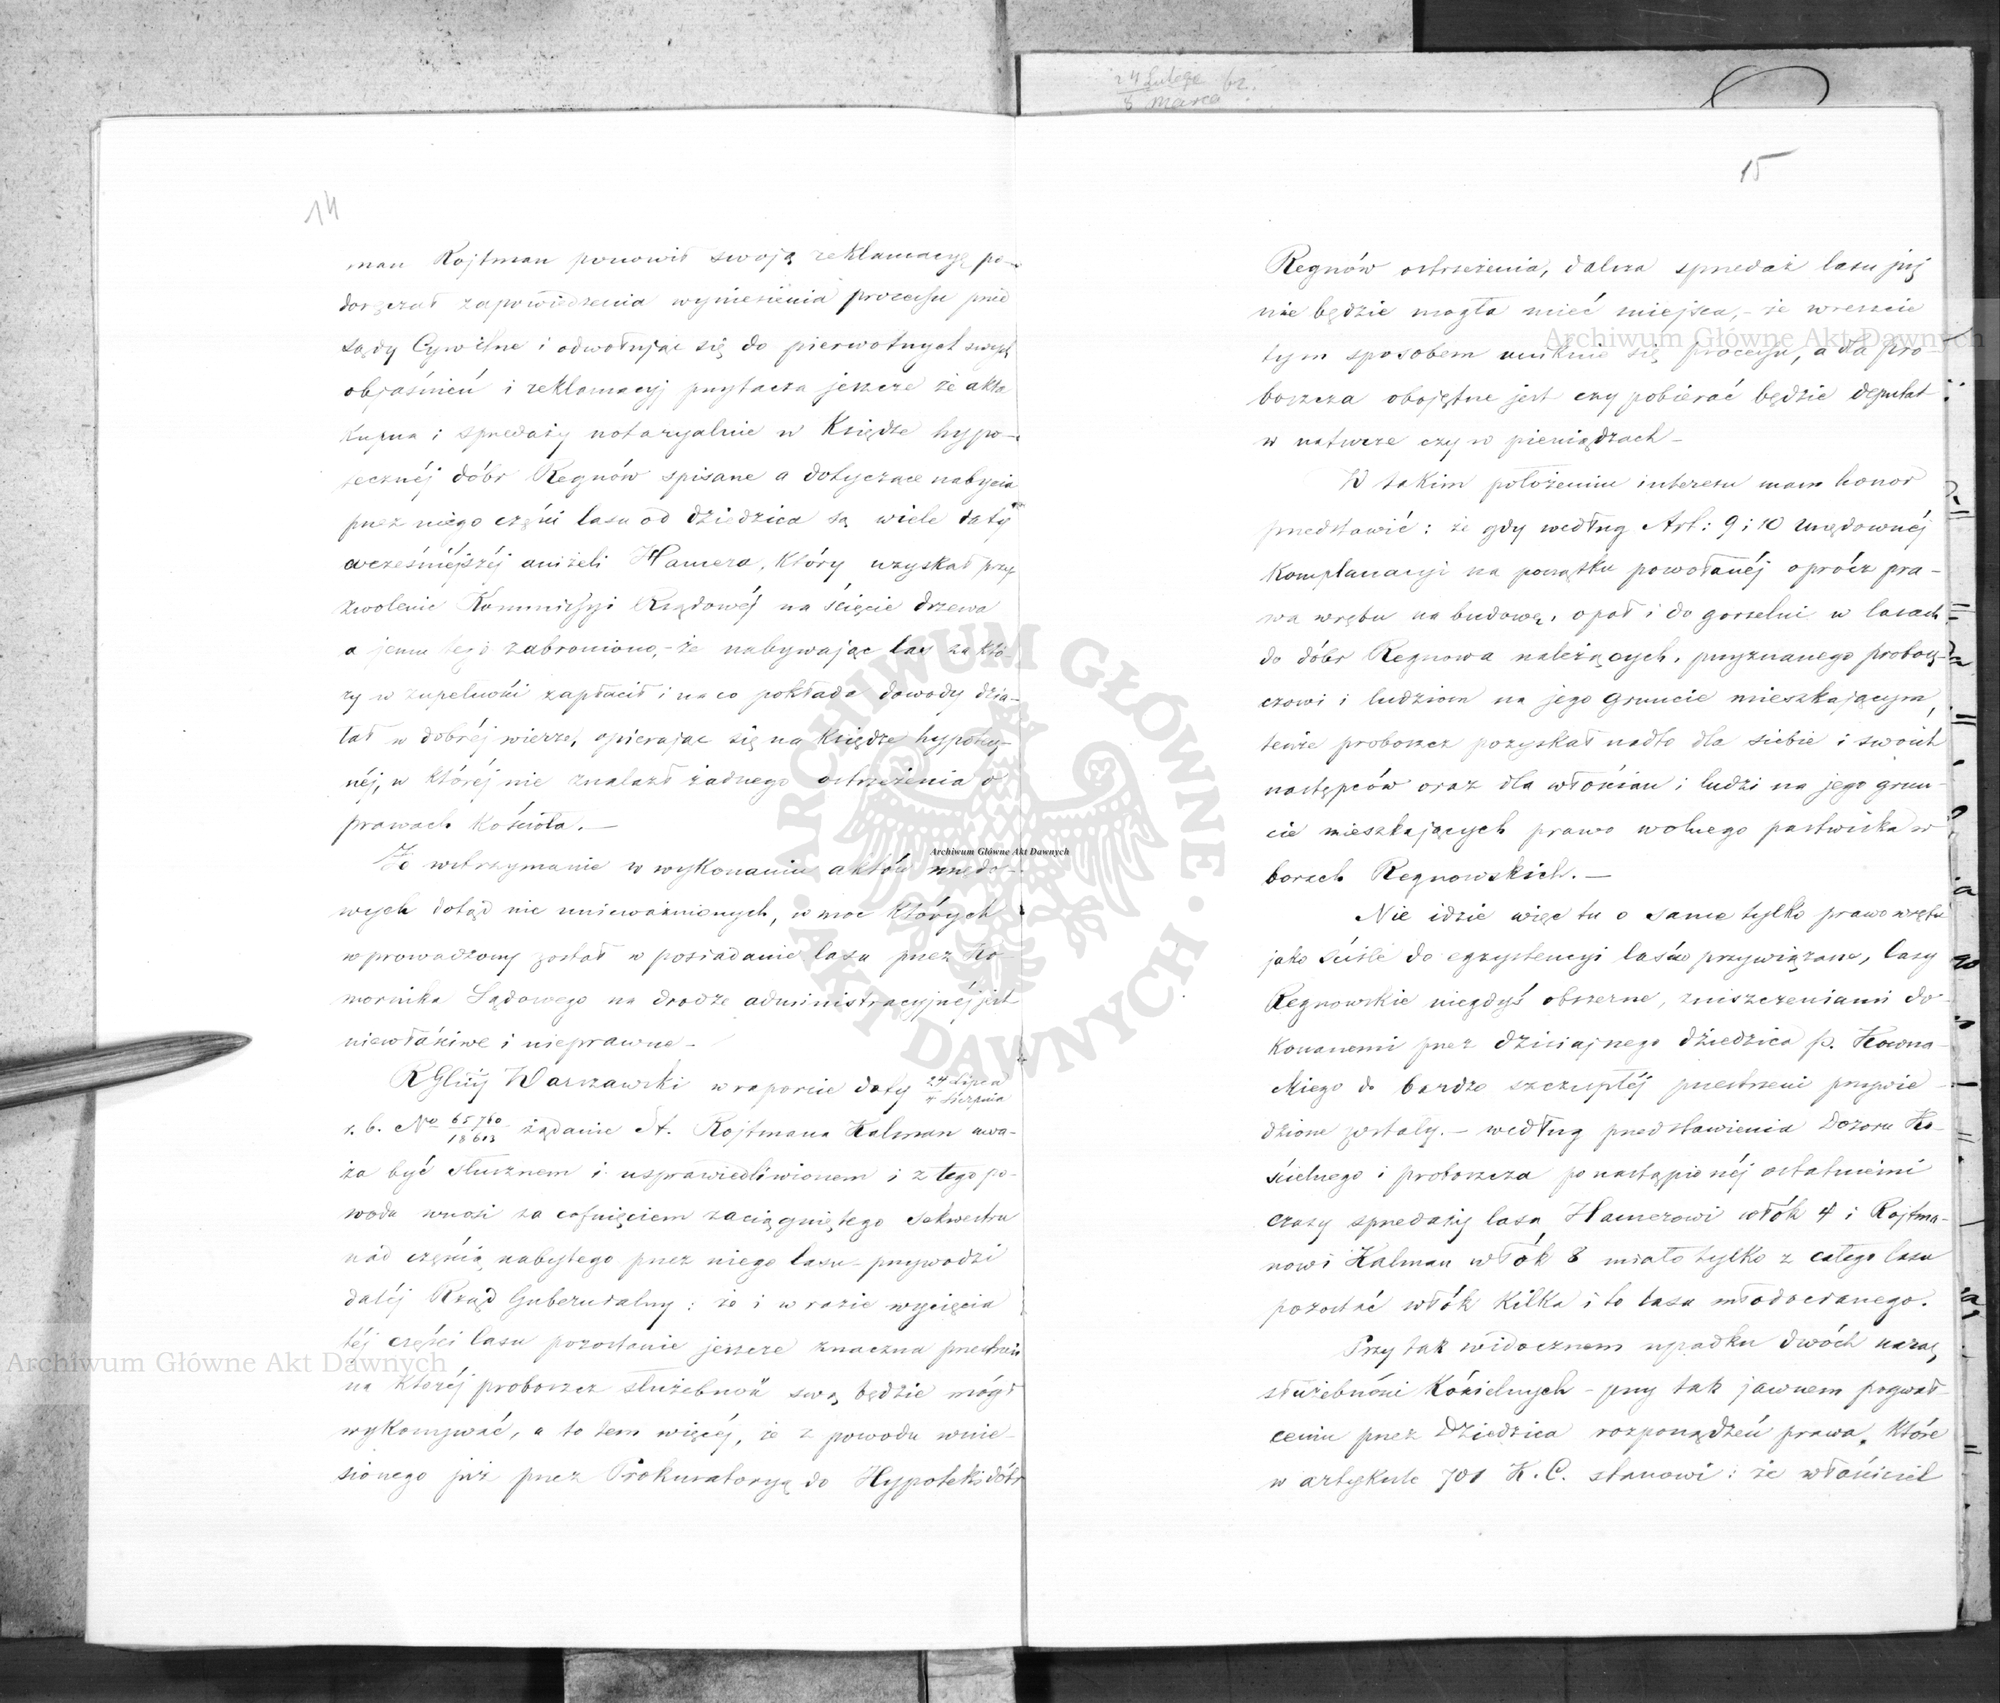 24 Lutego
8 Marca
14
man Rojtman ponowił swoją reklamacyę po-
doręczał zapowiedzenia wyniesienia processu przed
Sądy Cywilne i odwołując się do pierwotnych swych
objaśnień i reklamacyj przytacza jeszcze że akta
kupna i sprzedaży notaryalnie w Księdze hypo-
tecznéj dóbr Regnów spisane a dotyczące nabycia
przez niego części lasu od dziedzica są wiele daty
wcześniéjszéj aniżeli Hamera, który uzyskał przy-
zwolenie Kommissyi Rządowéj na ścięcie drzewa
a jemu tego zabroniono,- że nabywając las za któ-
ry w zupełności zapłacił i na co pokłada dowody dzia-
łał w dobréj wierze, opierając się na Księdze hypotecz-
néj, w któréj nie znalazł żadnego ostrzeżenia o
prawach Kościoła.—
Że wstrzymanie w wykonaniu aktów urzędo-
wych dotąd nie unieważnionych, w moc których
wprowadzony został w posiadanie lasu przez Ko-
mornika Sądowego na drodze administracyjnéj jest
niewłaściwe i nieprawne-
RGlny Warszawski w raporcie daty 24 Lipca
4 Sierpnia
r. b. No 65760
18603 żądanie St. Rojtmana Kalman uwa-
ża być słusznem i usprawiedliwionem i z tego po-
wodu wnosi za cofnięciem zaciągniętego Sekwestru
nad częścią nabytego przez niego lasu- przywodzi
daléj Rząd Gubernialny: że i w razie wycięcia
téj części lasu pozostanie jeszcze znaczna przestrzeń
na któréj proboszcz służebność swą będzie mógł
wykonywać, a to tem więcéj, że z powodu wnie-
sionego już przez Prokuratoryą do Hypoteki dóbr
15
Regnów ostrzeżenia, dalsza sprzedaż lasu już
nie będzie mogła mieć miejsca,- że wreszcie
tym sposobem uniknie się processu, a dla pro-
boszcza obojętne jest czy pobierać będzie deputat
w naturze czy w pieniądzach-
W takim położeniu interesu mam honor
przedstawić: że gdy według Art: 9 i 10 urzędownéj
Komplanacyi na początku powołanéj oprócz pra-
wa wrębu na budowę, opał i do gorzelni w lasach
do dóbr Regnowa należących, przyznanego probosz-
czowi i ludziom na jego gruncie mieszkającym,
tenże proboszcz pozyskał nadto dla siebie i swoich
następców oraz dla włościan i ludzi na jego grun-
cie mieszkających prawo wolnego pastwiska w
borach Regnowskich.—
Nie idzie więc tu o same tylko prawo wrębu
jako ściśle do egzystencyi lasów przywiązane, lasy
Regnowskie niegdyś obszerne, zniszczeniami do-
konanemi przez dzisiajnego dziedzica p. Kowna-
ckiego do bardzo szczupłéj przestrzeni przywie-
dzione zostały.- według przedstawienia Dozoru Ko-
ścielnego i proboszcza po nastąpionéj ostatniemi
czasy sprzedaży lasu Hamerowi włók 4 i Rojtma-
nowi Kalman włók 8 miało tylko z całego lasu
pozostać włók kilka i to lasu młodocianego.
Przy tak widocznem upadku dwóch naraz
służebności Kościelnych - przy tak jawnem pogwał-
ceniu przez Dziedzica rozporządzeń prawa, które
w artykule 701 K. C. stanowi: że właściciel
Archiwum Główne Akt Dawnych
Archiwum Główne Akt Dawnych
Archiwum Główne Akt Dawnych
ARCHIWUM GŁÓWNE AKT DAWNYCH